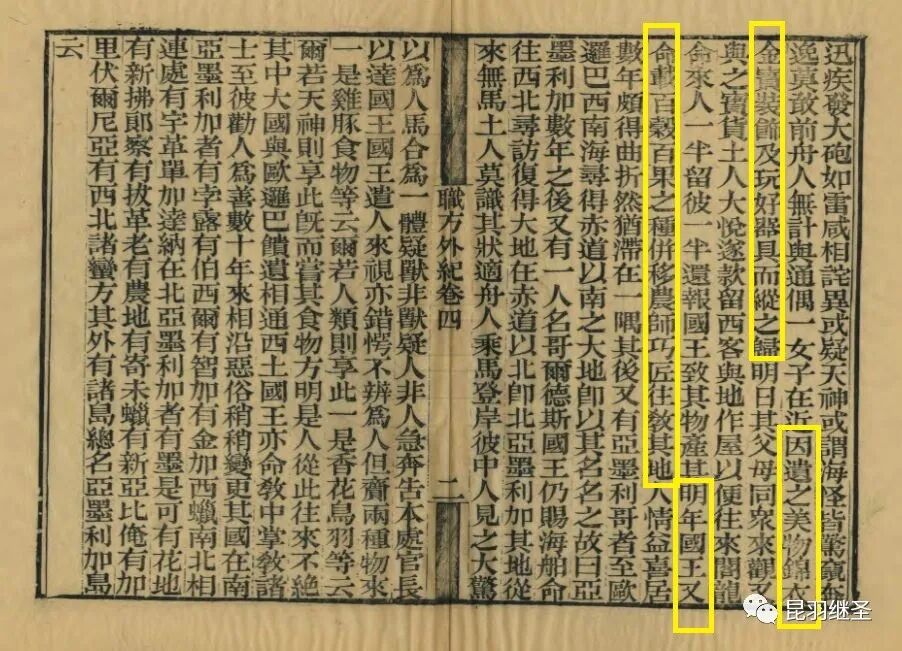 迅疾發大砲如雷咸相詫異或疑天神或謂海怪皆驚竄奔
逸莫敢前舟人無計與通偶一女子在近因遺之美物錦衣
金寶裝飾及玩好器具而縱之歸明日其父母同衆來觀又
與之寶貨土人大悅遂款留西客與地作屋以便往來閣龍
命來人一半留彼一半還報國王致其物產其明年國王又
命載百穀百果之種併移農師巧匠往敎其地人情益喜居
數年頗得曲折然猶滯在一隅其後又有亞墨利哥者至歐
邏巴西南海尋得赤道以南之大地卽以其名名之故曰亞
墨利加數年之後又有一人名哥爾德斯國王仍賜海舶命
往西北尋訪復得大地在赤道以北卽北亞墨利加其地從
來無馬土人莫識其狀適舟人乘馬登岸彼中人見之大驚
職方外紀卷四 二
以爲人馬合爲一體疑獸非獸疑人非人急奔告本處官長
以達國王國王遣人來視亦錯愕不辨爲人但齎兩種物來
一是雞豚食物等云爾若人類則享此一是香花鳥羽等云
爾若天神則享此旣而嘗其食物方明是人從此往來不絕
其中大國與歐邏巴饋遺相通西土國王亦命敎中掌敎諸
士至彼勸人爲善數十年來相沿惡俗稍稍變更其國在南
亞墨利加者有孛露有伯西爾有智加有金加西蠟南北相
連處有宇革單加達納在北亞墨利加者有墨是可有花地
有新拂郎察有拔革老有農地有寄未蠟有新亞比俺有加
里伏爾尼亞有西北諸蠻方其外有諸島總名亞墨利加島
云
昆羽继圣